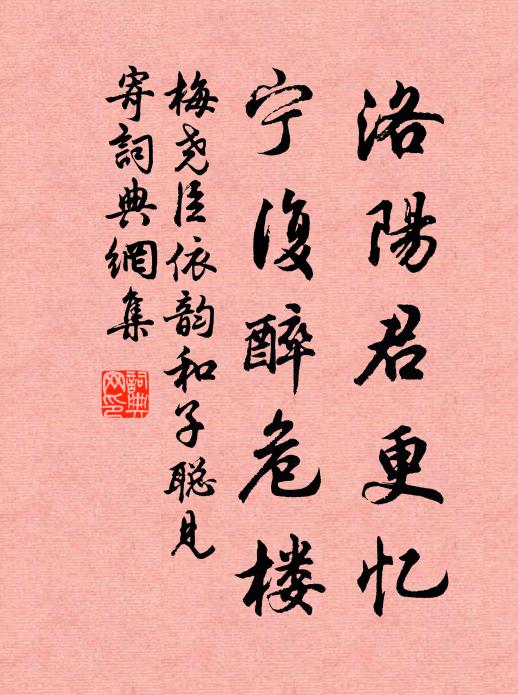 洛陽君更忆
宁復醉危楼
梅尧臣依韵和子聪见
寄詞典網集
詞典
网印